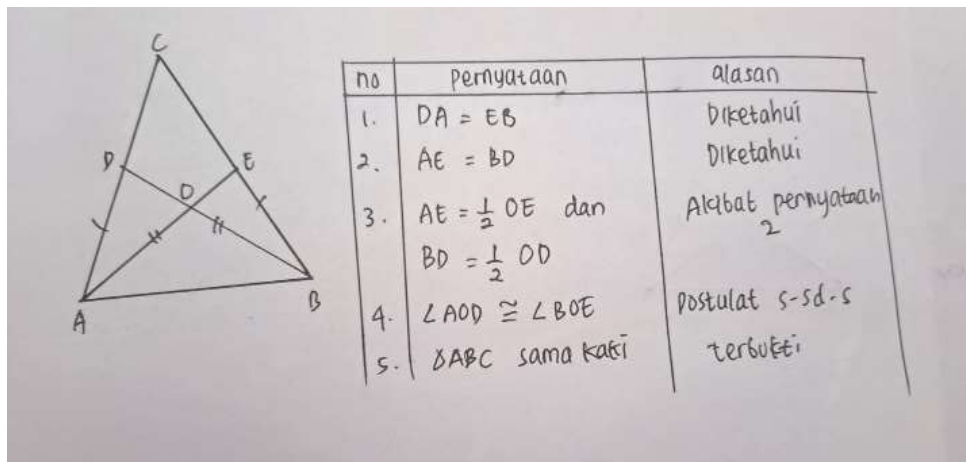 C
D
E
O
A
B
no pernyataan alasan
1. DA = EB Diketahui
2. AE = BD Diketahui
3. AE = 1/2 OE dan Akibat pernyataan
2
BD = 1/2 OD
4. ∠AOD ≅ ∠BOE Postulat s-sd-s
5. ΔABC sama kaki terbukti